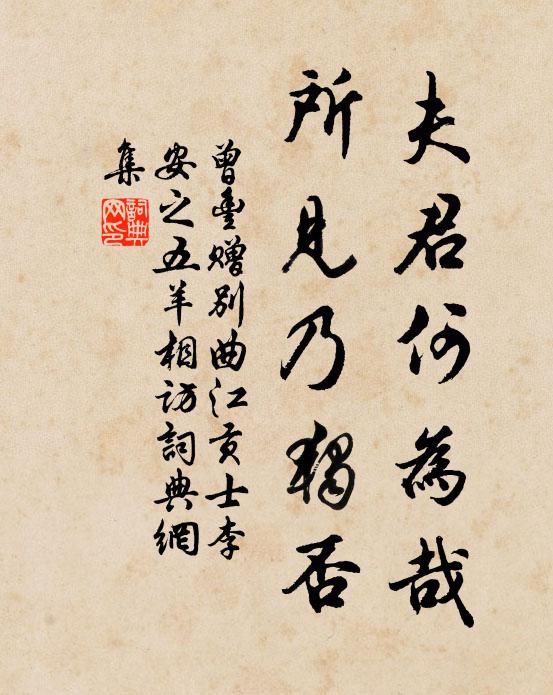 夫君何為哉
所見乃獨否
曾豐贈別曲江貢士李
安之五羊相訪詞典網
集
詞典
网印